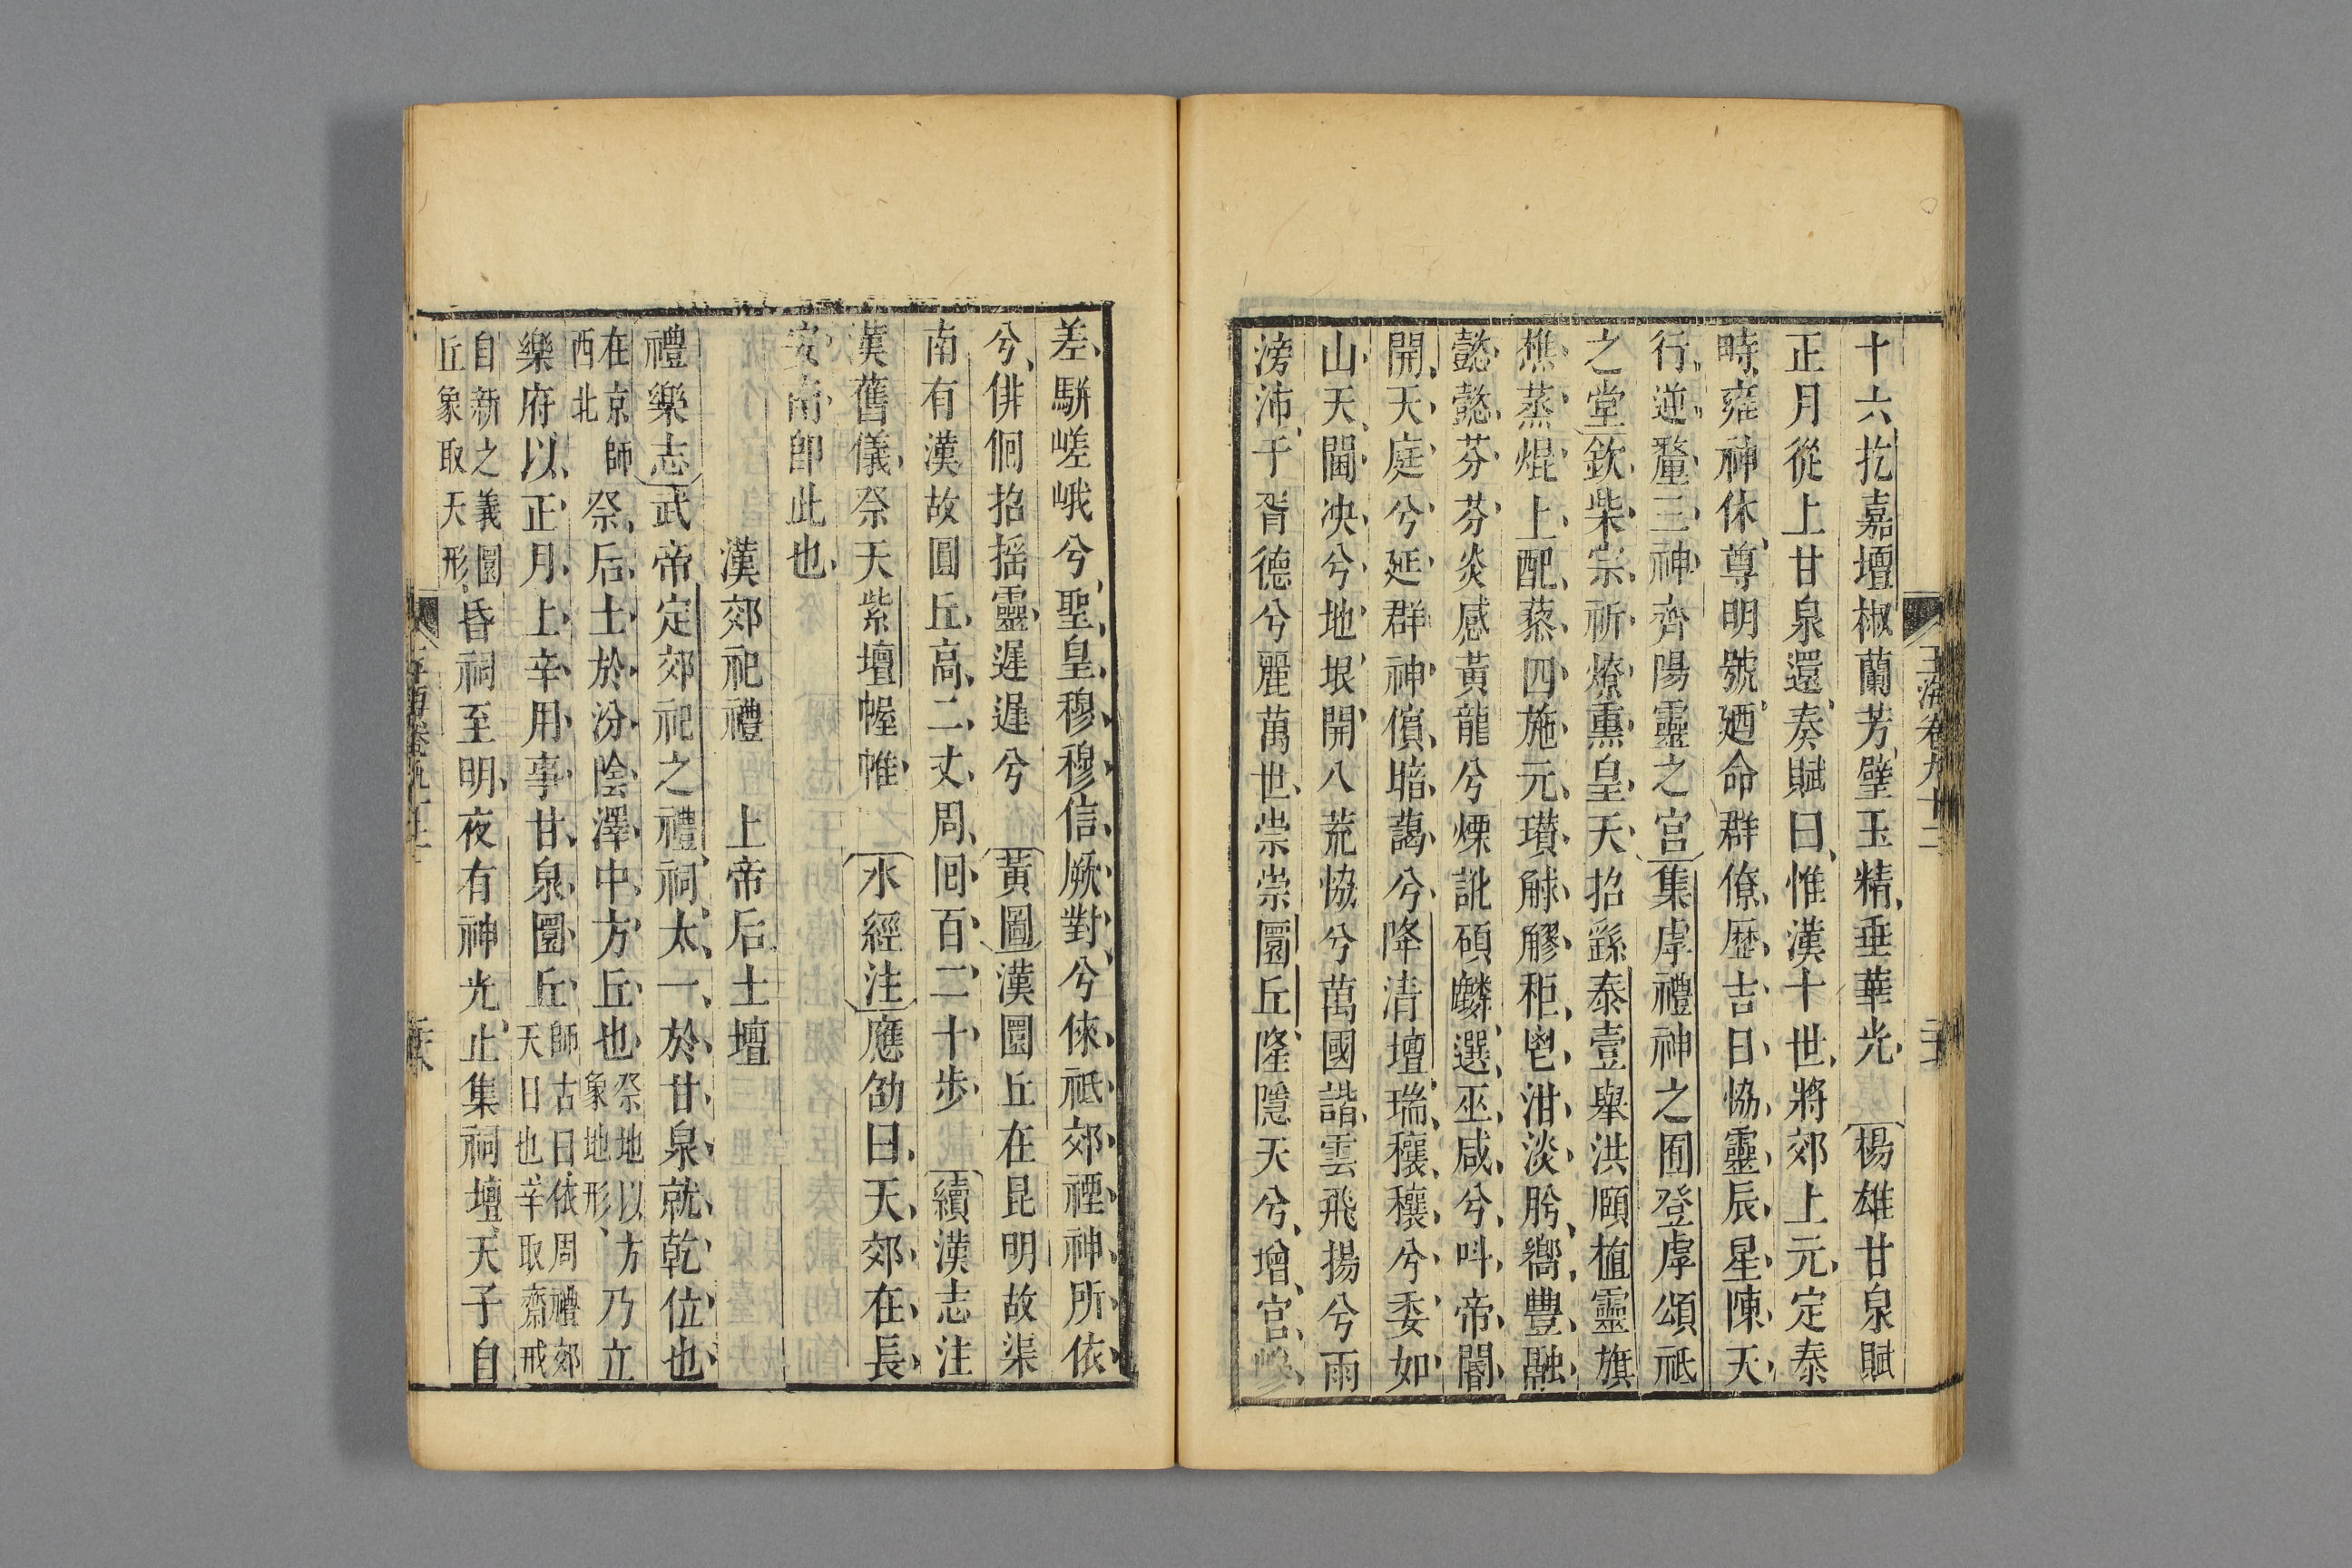 玉海卷九十三
十六扢嘉壇椒蘭芳璧玉精垂華光楊雄甘泉賦
正月從上甘泉還奏賦曰惟漢十世將郊上元定泰
畤雍神休尊明號廼命群僚歷吉日協靈辰星陳天
行逆釐三神齊陽靈之宮集虖禮神之囿登虖頌祇
之堂欽柴宗祈燎熏皇天招繇泰壹舉洪頤植靈旗
樵蒸焜上配藜四施元瓚觩䚧秬鬯泔淡肸嚮豐融
懿懿芬芬炎感黃龍兮熛訛碩麟選巫咸兮叫帝閽
開天庭兮延群神儐暗藹兮降清壇瑞穰穰兮委如
山天閫決兮地垠開八荒恊兮萬國諧雲飛揚兮雨
滂沛于胥德兮麗萬世崇崇圜丘隆隱天兮增宮
差駢嵯峨兮聖皇穆穆信厥對兮倈祗郊禋神所依
兮俳佪招摇靈遲遲兮黃圖漢圜丘在昆明故渠
南有漢故圓丘高二丈周囘百二十步續漢志注
漢舊儀祭天紫壇幄帷水經注應劭曰天郊在長
安南卽此也
漢郊祀禮　上帝后土壇
禮樂志武帝定郊祀之禮祠太一於甘泉就乾位也
在京師西北祭后土於汾陰澤中方丘也祭地以方象地形乃立
樂府以正月上辛用事甘泉圜丘師古曰依周禮郊天日也辛取齋戒
自新之義圜丘象取天形昏祠至明夜有神光止集祠壇天子自